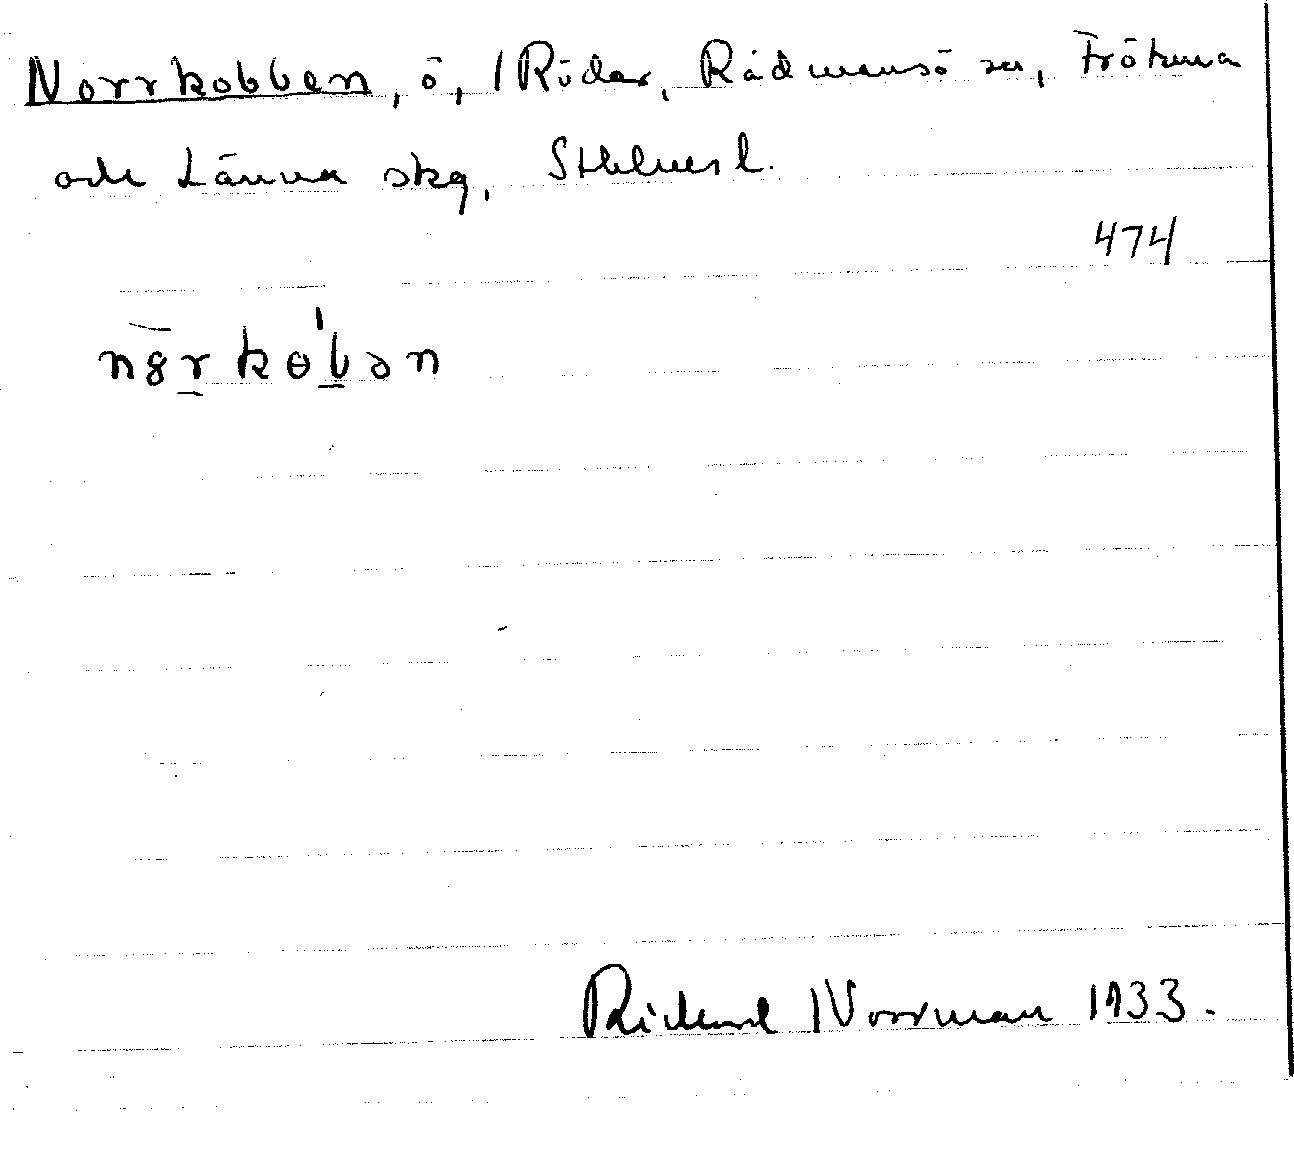 Norrkobben, ö, Röder, Rådmansö sn, Frötuna
och Länna skg, Sthlms l.
474
nørkobən
Rickard Norrman 1933.